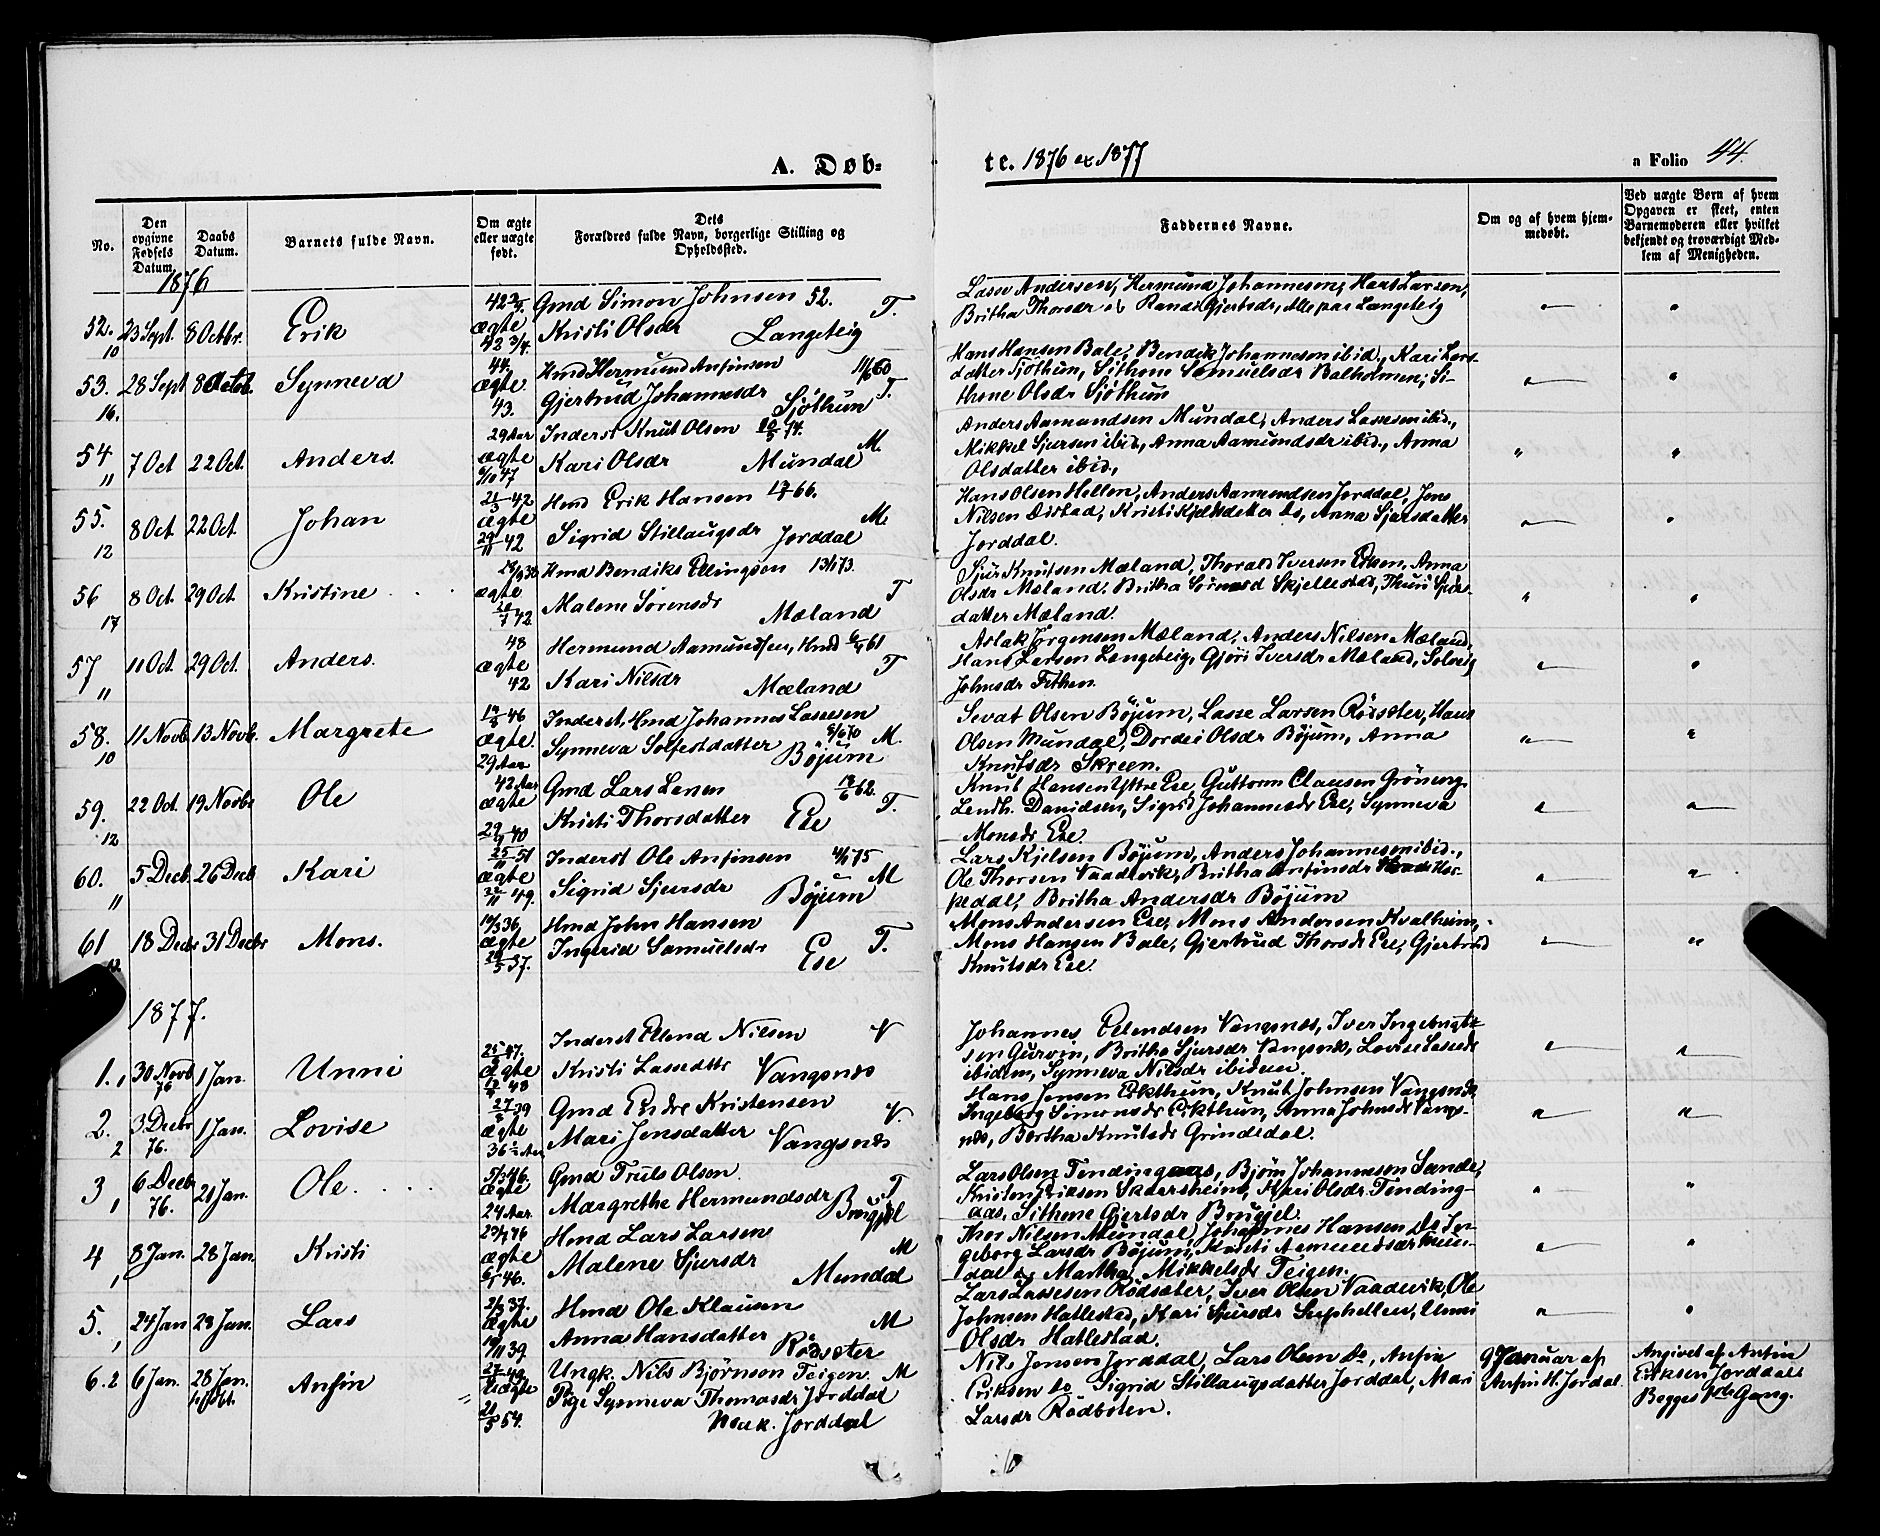 A. Døb=
te. 1876 og 1877
a Folio 44.
No.
Den opgivne Fødsels Datum.
Daabs Datum.
Barnets fulde Navn.
Om ægte eller uægte født.
Dets Forældres fulde Navn, borgerlige Stilling og Opholdssted.
Faddernes Navne.
Om og af hvem hjem-medøbt.
Ved uægte Børn af hvem Opgaven er skeet, enten Barnemoderen eller hvilket bekjendt og troværdigt Med-lem af Menigheden.
1876
52. 10 23 Sept. 8 Octbr. Erik ægte 42 3/4.
Gmd Simon Johnsen 52. T.
Kristi Olsdr Langeteig
Lasse Andersen, Hermund Johannesen, Hans Larsen,
Britha Thorsdr og Randi Gjertsdr, Alle paa Langeteig
53. 16. 28 Sept 8 Octob. Synneva 44. ægte 43.
Hmd Hermund Anfinsen 11/6 60
Gjertrud Johannesdr Sjøthun T.
Hans Hansen Bale, Bendik Johannesen ibid., Kari Lars-
datter Sjøthun, Sithene Samuelsdr Balholmen, Si-
thene Olsdr Sjøthun
54 11 7 Oct 22 Oct. Anders. 29 Aar ægte 6/10 47
Inderst Knut Olsen 74.
Kari Olsdr Mundal M.
Anders Aamundsen Mundal, Anders Lassesen ibid.,
Mikkel Sjursen ibid., Anna Aamundsdr ibid., Anna
Olsdatter ibid.,
55. 12 8 Oct 22 Oct Johan 21/3 42 ægte 29/11 42
Hmd Erik Hansen 66.
Sigrid Stillaugsdr Jorddal M.
Hans Olsen Hellen, Anders Aamundsen Jorddal, Jens
Nilsen Distad, Kristi Kjelsdatter Do, Anna Sjursdatter
Jorddal.
56 17 8 Oct. 29 Oct. Kristine ægte 42
Hmd Bendiks Ellingsen 13/1 73.
Malene Sørensdr Mæland T
Sjur Knutsen Mæland, Thorald Iversen Esen, Anna
Olsdr Mæland, Britha Skjellestad, Thuri
datter Mæland.
57 11 11 Oct. 29 Oct. Anders. 48 ægte 42
Hermund Aamundsen, Hmd 61
Kari Nilsdr Mæland T
Aslak Jørgensen Mæland, Anders Nilsen Mæland,
Hans Larsen Langeteig, Gjøri Iversdr Mæland, Solveig
Johnsdr Fethen.
58. 10 11 Novb. 13 Novb. Margrete 46 ægte. 29 Aar
Inderst, Hmd Johannes Lassesen 70
Synneva Solfestdatter Bøjum M.
Sevat Olsen Bøjum, Lasse Larsen Rødsæter, Hans
Olsen Mundal, Dordei Olsdr Bøjum, Anna
Knutsdr Skreen.
59. 12 22 Oct. 19 Novbr Ole 42 Aar ægte 40
Gmd Lars Larsen 62.
Kristi Thorsdatter Ese T.
Knut Hansen Yttre Ese, Guttorm Clausen Grøneng
Lendh. Davidsen, Sigrid Johannesdr Ese, Synneva
Monsdr Ese.
60. 11 5 Decb. 26 Decb Kari 25/11 51 ægte 49.
Inderst Ole Anfinsen 75
Sigrid Sjursdr Bøjum M
Lars Kjelsen Bøjum, Anders Johannesen ibid.,
Ole Thorsen Vaadevik, Britha Anfinsdr Hor-
pedal, Britha Andersdr Bøjum
61 12. 18 Decbr 31 Decbr Mons. 36. ægte 37.
Hmd John Hansen
Ingerid Samuelsdr Ese T.
Mons Andersen Ese, Mons Andersen Kvalheim,
Mons Hansen Bale, Gjertrud Thorsdr Ese, Gjertrud
Knutsdr Ese.
1877.
1. 1 30 Novb 76 1 Jan. Unni 47. ægte 48
Inderst Erlend Nilsen V
Kristi Lassedatter Vangsnes
Johannes Erlendsen Vangsnes, Iver Ingebrigt-
sen Gurvin, Britha Sjursdr Vangsnes, Lovise Lassedr
ibidem, Synneva Nilsdr ibidem.
2. 2 3 Decbr 76. 1 Jan. Lovise 27 39 ægte 36 1/2 Aar
Gmd Endre Kristensen V.
Mari Jensdatter Vangsnes
Hans Jensen Eikthun, Knut Johnsen Vangsnes,
Ingeborg Simonsdr Eikthun, Anna Johnsdr Vangs-
nes, Bertha Knutsdr Grindedal.
3 1 6 Decbr 76. 21 Jan. Ole. 46. ægte 24 Aar
Gmd Truls Olsen. T
Margrethe Hermundsdr Brugjel
Lars Olsen Tendingaas, Bjørn Johannesen Sande,
Kristen Eriksen Skarsheim, Kari Olsdr Tending-
aas, Sithene Gjertsdr Brugjel.
4 1 8 Jan. 28 Jan. Kristi 46 ægte 46.
Hmd Lars Larsen M
Malene Sjursdr Mundal
Thor Nilsen Mundal, Johannes Hansen Do In-
geborg Larsdr Bøjum, Kristi Aamundsdr Mun-
dal og Martha Mikkelsdr Teigen.
5. 1 24 Jan 28 Jan. Lars 2/3 37. ægte 39
Hmd Ole Klausen M
Anna Hansdatter Rødsæter
Lars Lassesen Rødsæter, Iver Olsen Vaadevik, Ole
Johnsen Hatlestad, Kari Sjursdr Suphellen, Unni
Olsdr Hatlestad.
6. 2 6 Jan. 28 Jan. Anfin 27 49. Uægte 21/5 54.
Ungk. Nils Bjørnson Teigen M
Pige Synneva Thomasdr Jorddal
Jorddal
Nils Jensen Jorddal, Lars Olsen Do, Anfin
Eriksen Do Sigrid Stillaugsdatter Jorddal, Mari
Larsdr Rødboten.
9 Januar af
Anfin H. Jordal.
Angivet af Anfin
Eriksen Jorddal.
Begges Gang.